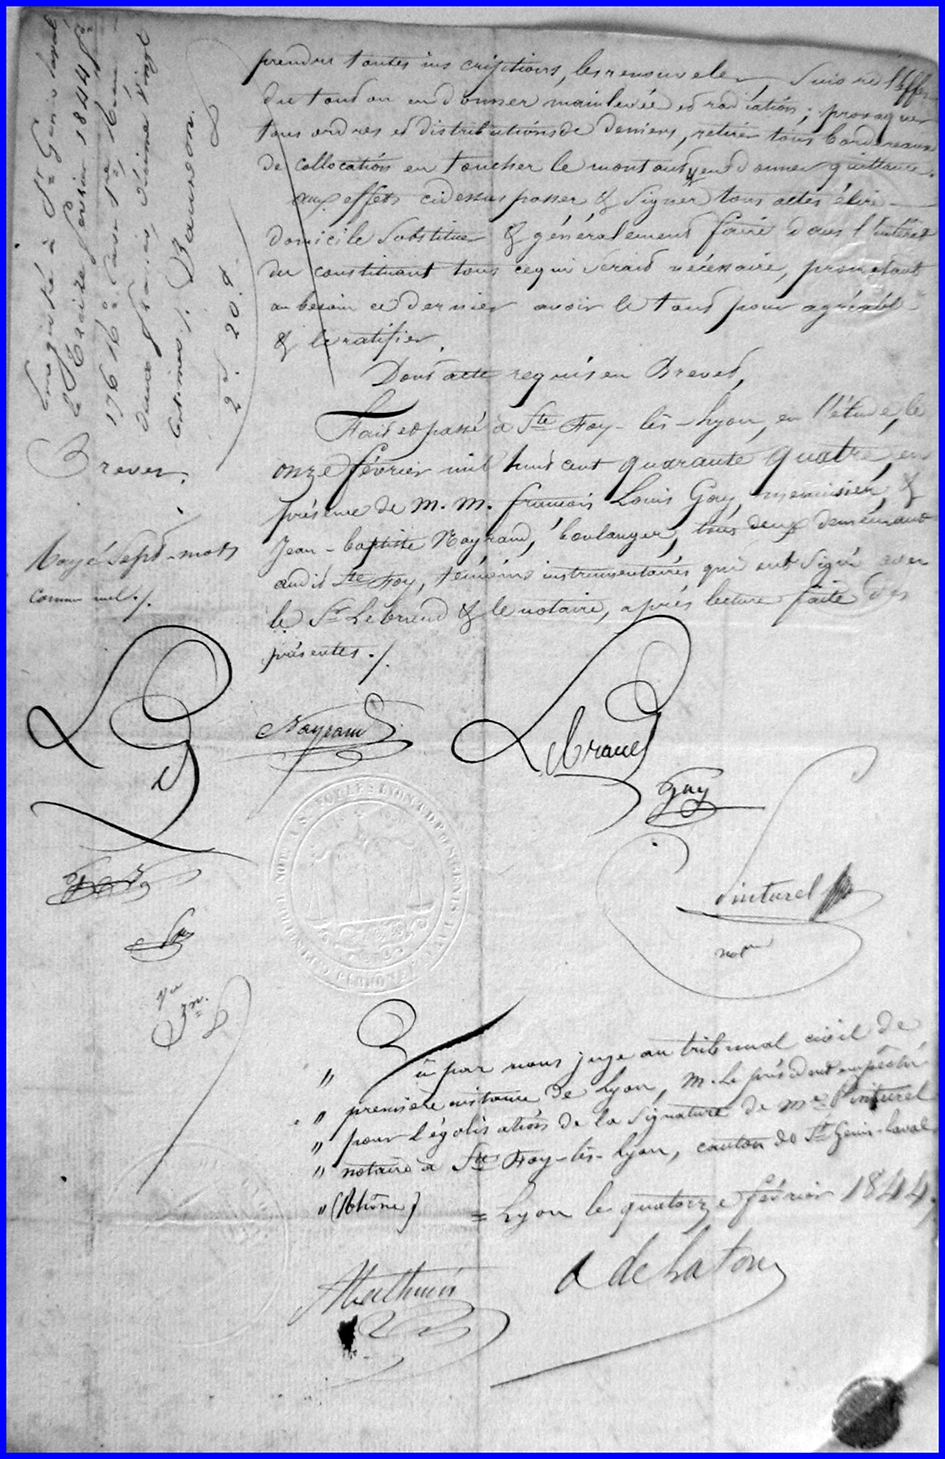 prendre toutes inscriptions, les renouveler, suivre l'effet
du tout ou en donner mainlevée et radiation; provoquer
tous ordres et distributions de deniers, retirer tous bordereaux
de collocation en toucher le montant, en donner quittance.
aux effets ci dessus passer & signer tous actes élire
domicile substituer & généralement faire dans l'intérêt
du constituant tous ce qui serait nécessaire, promettant
au besoin ce dernier avoir le tout pour agréable
& le ratifier.
Dont acte requis en Brevet,
Fait et passé à Ste Foy-lès-Lyon, en l'étude, le
onze février mil huit cent quarante quatre, en
présence de m.m. françois Louis Gay, menuisier, &
Jean-baptiste Nayrand, boulanger, tous deux demeurant
audit Ste Foy, témoins instrumentaires qui ont signé avec
le Sr Lebrund & le notaire, après lecture faite des
présentes ./.
Enregistré à St Genis Laval
le treize février 1844 fo
176 Vo Case 1re Reçu
deux francs décime vingt
centimes ./.
2f. 20.c.
Brevet.
Rayé sept mots
comme nuls ./.
Nayrand
Lebrund
Gay
Pinturel
notre
Vu par nous juge au tribunal civil de
" première instance de Lyon, M. Le président empêché
" pour légalisation de la signature de Me Pinturel
" notaire à Ste Foy-lès-Lyon, canton de St Genis-Laval
" (Rhône) = Lyon le quatorze février 1844.
Mathieu
A delatour